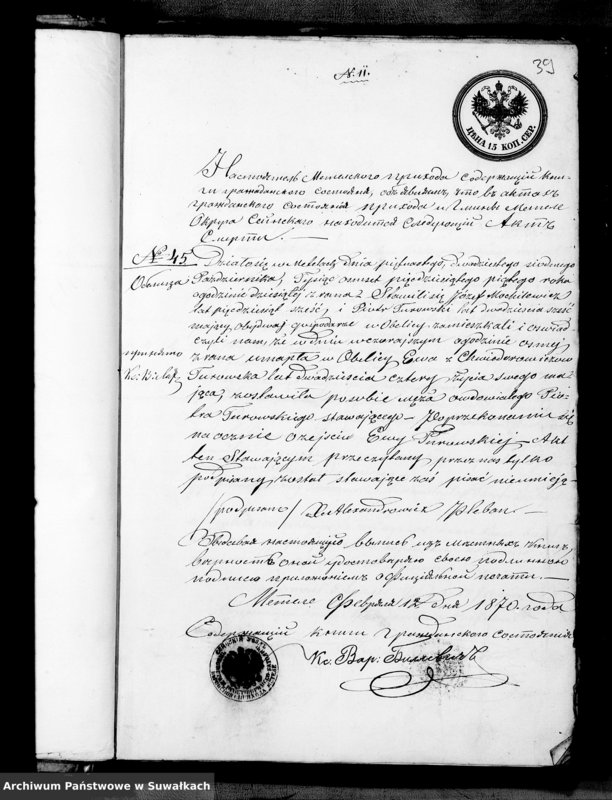 N. 11.
39
ЦѢНА 15 КОП. СЕР.
Настоятель Метельского прихода содержащій кни-
ги гражданского состоянія, объявляетъ, что въ актахъ
гражданского состоянія прихода и Гмины Метеле
Округа Сейнского находится слѣдующій Актъ
Смерти.
N. 45
Obelica
Działo się w Metelach dnia piętnastego, dwudziestego siódmego
Października, Tysiąc ośmset pięćdziesiątego piątego roku
o godzinie dziesiątej z rana. Stawili się Józef
lat pięćdziesiąt sześć, i Piotr Turowski lat dwadzieścia sześć
mający, obydwaj gospodarze w Obelicy zamieszkali i oświad-
czyli nam, że w dniu wczorajszym o godzinie osmej
z rana umarła w Obelicy Ewa z
Turowska lat dwadzieścia cztery życia swego ma-
jąca, zostawiła po sobie męża owdowiałego Pio-
tra Turowskiego stawającego – Po przekonaniu się
naocznie o zejściu Ewy Turowskiej, Akt
ten Stawającym przeczytany przez nas tylko
podpisany został stawające zaś pisać nieumieją
/podpisano/ X. Alexandrowicz Pleban.
настоящую выпись изъ книгъ,
вѣрность оной удостовѣряю своею
подписью приложеніемъ оффиціальной печати.
Метеле Февраля 12 дня 1870 года
Содержащій книги Гражданского состоянія
Кс. Вар.
Archiwum Państwowe w Suwałkach